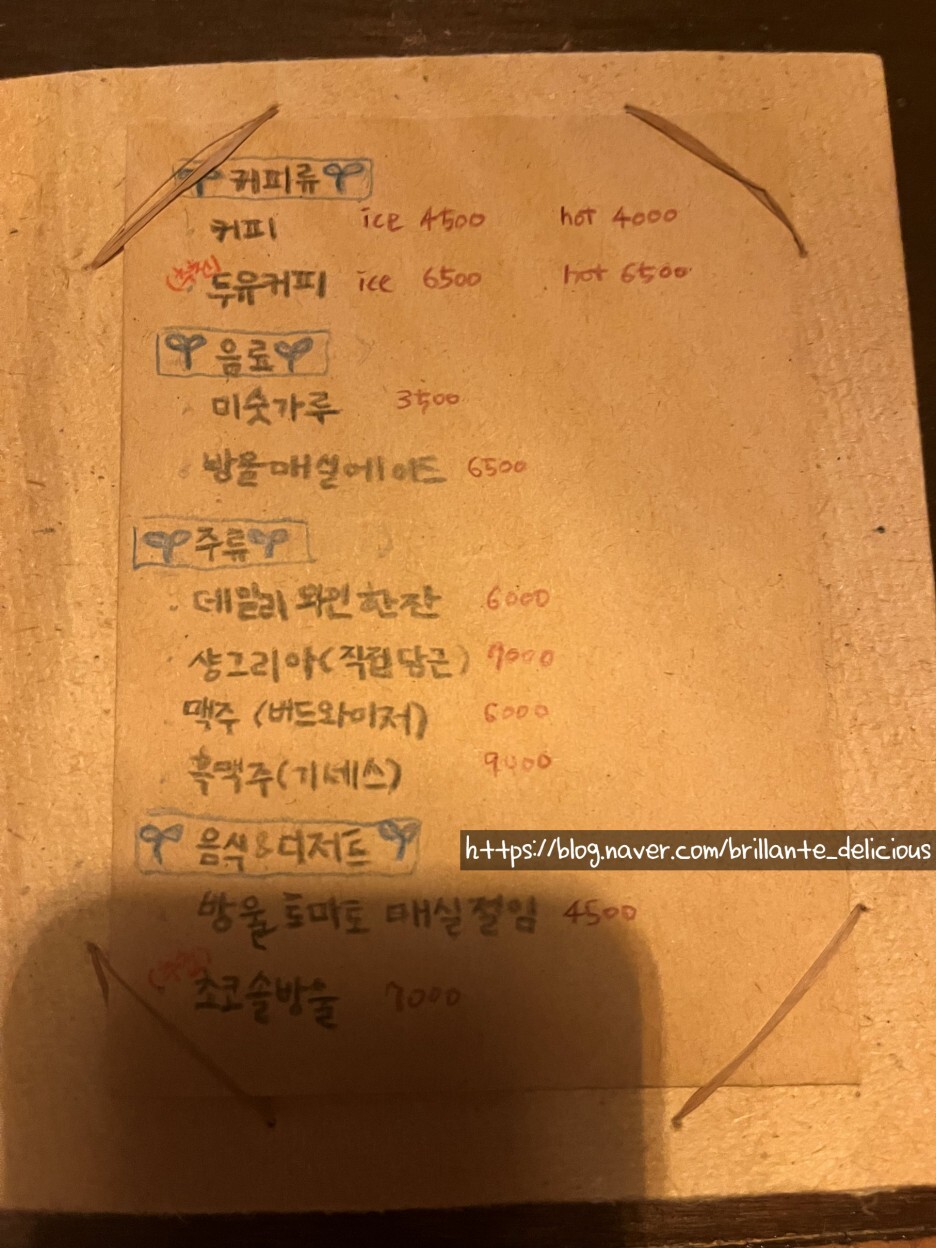 커피류
커피 ice 4500 hot 4000
추천 두유커피 ice 6500 hot 6500
음료
미숫가루 3500
방울매실에이드 6500
주류
데일리 와인 한잔 6000
샹그리아(직접담근) 7000
맥주 (버드와이저) 6000
흑맥주(기네스)
음식&디저트
방울토마토 매실절임 4500
초코솔방울 7000
https://blog.naver.com/brillante_delicious